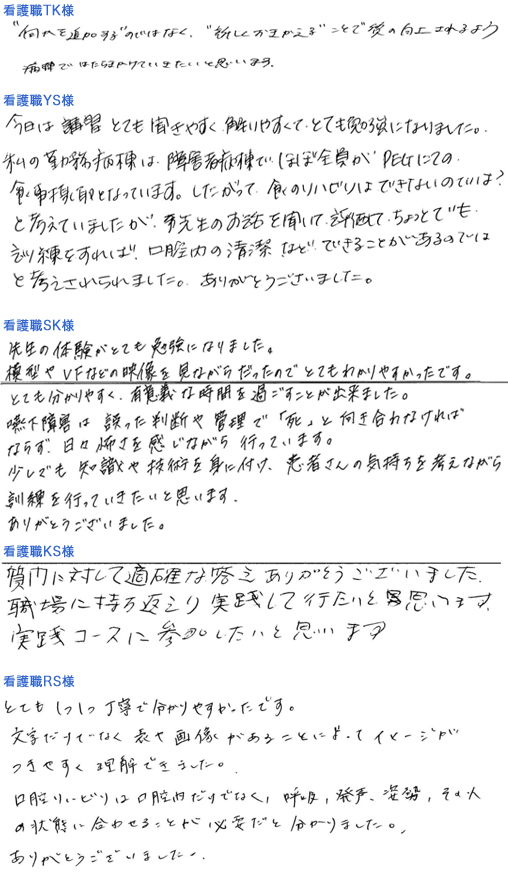 看護職TK様
"何かを追加する"のではなく、"新しくおきかえる"ことで質の向上されるよう
病棟ではたらきかけていきたいと思います。
看護職YS様
今日は講習とても聞きやすく、解りやすくて、とても勉強になりました。
私の勤務病棟は、障害者病棟で、ほぼ全員がPEGにての
食事摂取となっています。したがって、食のリハビリはできないのでは?
と考えていましたが、先生のお話を聞いて、評価して、ちょっとでも
訓練をすれば、口腔内の清潔など、できることがあるのでは
と考えさせられました。ありがとうございました。
看護職SK様
先生の体験がとても勉強になりました。
模型やVFなどの映像を見ながらだったのでとてもわかりやすかったです。
とても分かりやすく、有意義な時間を過ごすことが出来ました。
嚥下障害は誤った判断や管理で「死」と向き合わなければ
ならず、日々怖さを感じながら行っています。
少しでも知識や技術を身に付け、患者さんの気持ちを考えながら
訓練を行っていきたいと思います。
ありがとうございました。
看護職KS様
質問に対して適確な答えありがとうございました。
職場に持ち返えり実践して行たいと思います。
実践コースに参加したいと思います
看護職RS様
とても1つ1つ丁寧で分かりやすかったです。
文字だけでなく表や画像があることによってイメージが
つきやすく理解できました。
口腔リハビリは口腔内だけでなく、呼吸、発声、姿勢、その人
の状態に合わせることが必要だと分かりました。
ありがとうございました。